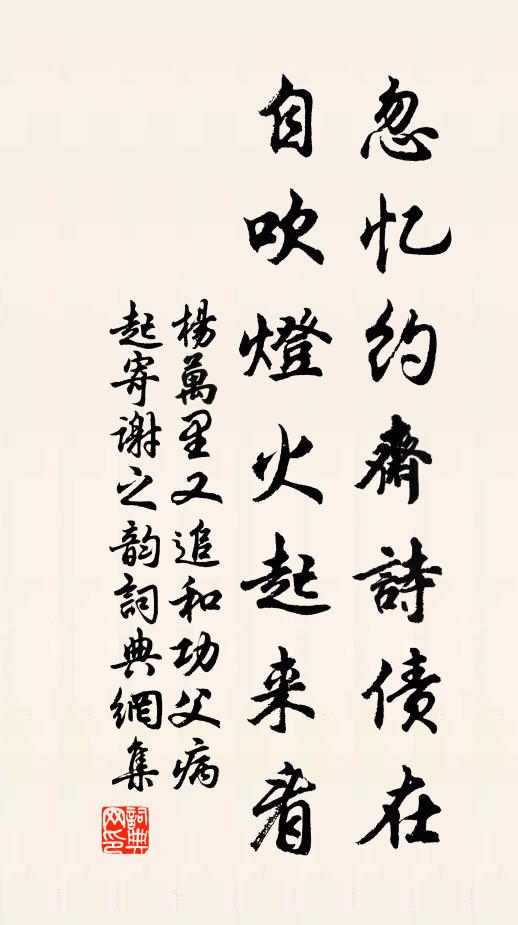 忽忆约齋詩债在
自吹燈火起来看
楊萬里又追和功父病
起寄謝之韵詞典網集
詞典
网印